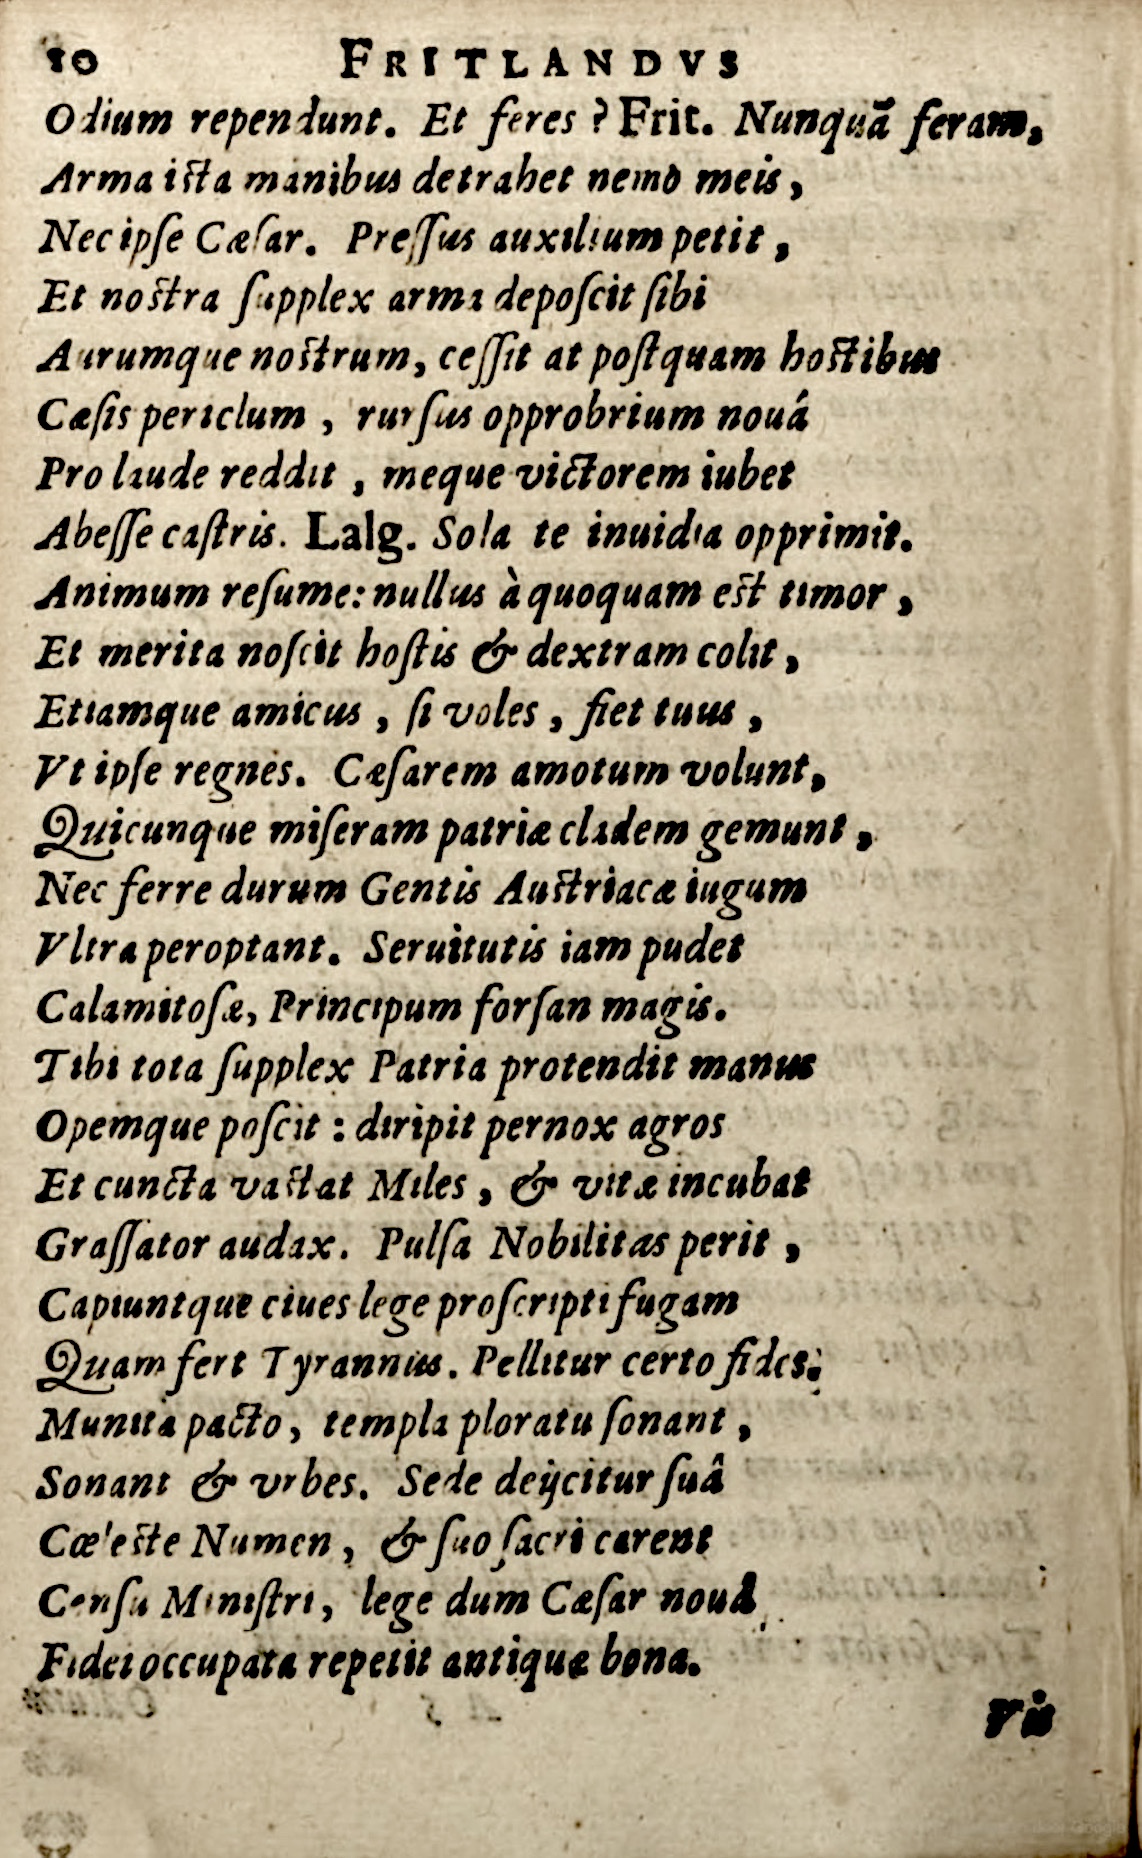 10 FRITLANDVS
Odium rependunt. Et feres? Frit. Nunquã feram,
Arma ista manibus detrahet nemo meis,
Nec ipſe Cæſar. Preſſus auxilium petit,
Et nostra ſupplex arma depoſcit ſibi
Aurumque nostrum, ceſſit at poſtquam hostibus
Cæſis periclum, rurſus opprobrium nouâ
Pro laude reddit, meque victorem iubet
Abeſſe caſtris. Lalg. Sola te inuidia opprimit.
Animum reſume: nullus à quoquam est timor,
Et merita noſcit hoſtis & dextram colit,
Etiamque amicus, ſi voles, fiet tuus,
Vt ipſe regnes. Cæſarem amotum volunt,
Quicunque miſeram patriæ cladem gemunt,
Nec ferre durum Gentis Austriacæ iugum
Vltra peroptant. Seruitutis iam pudet
Calamitoſæ, Principum forſan magis.
Tibi tota ſupplex Patria protendit manus
Opemque poſcit: diripit pernox agros
Et cuncta vastat Miles, & vitæ incubat
Graſſator audax. Pulſa Nobilitas perit,
Capiuntque ciues lege proſcripti fugam
Quam fert Tyrannus. Pellitur certo fides:
Munita pacto, templa ploratu ſonant,
Sonant & vrbes. Sede deijcitur ſuâ
Cœleste Numen, & ſuo ſacri carent
Cenſu Miniſtri, lege dum Cæſar nouâ
Fidei occupata repetit antiquæ bona.
Vis